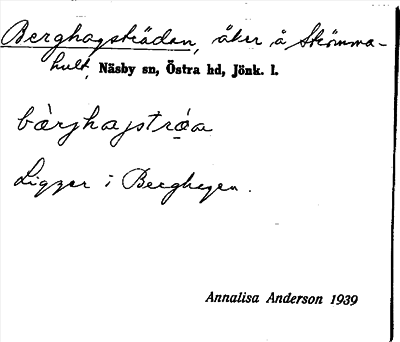 Berghagsträdan, åker å Strömma-
hult, Näsby sn, Östra hd, Jönk. l.
bàrjhagstra̠a
Ligger i Berghagen.
Annalisa Anderson 1939